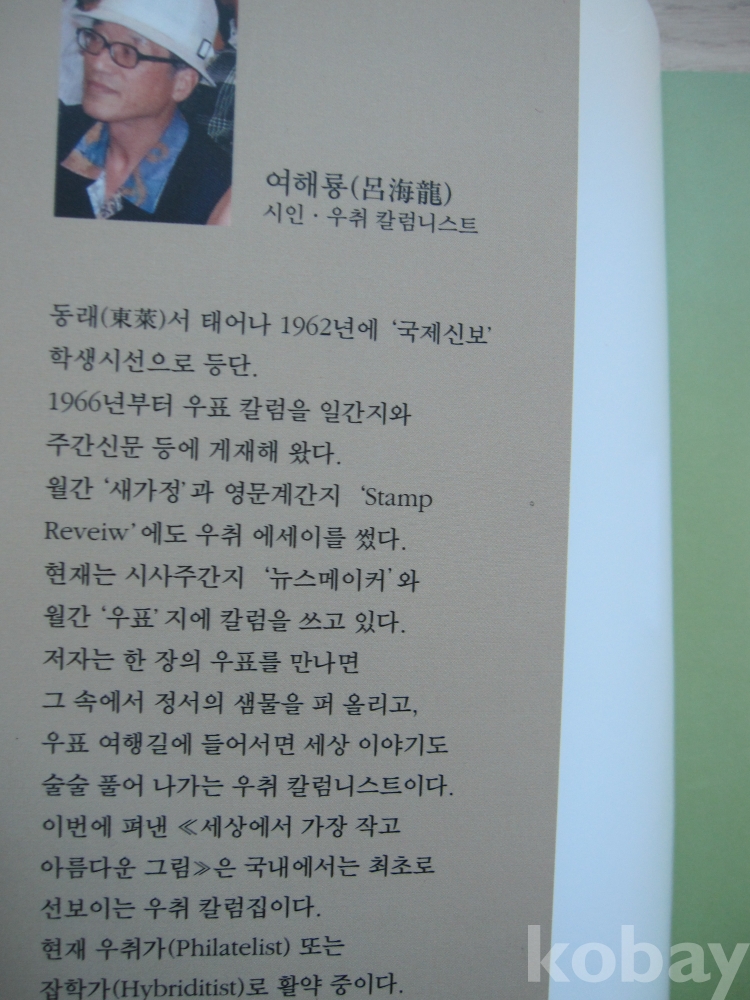 여해룡(呂海龍)
시인 · 우취 칼럼니스트
동래(東萊)서 태어나 1962년에 ‘국제신보’
학생시선으로 등단.
1966년부터 우표 칼럼을 일간지와
주간신문 등에 게재해 왔다.
월간 ‘새가정’과 영문계간지 ‘Stamp
Reveiw’에도 우취 에세이를 썼다.
현재는 시사주간지 ‘뉴스메이커’와
월간 ‘우표’지에 칼럼을 쓰고 있다.
저자는 한 장의 우표를 만나면
그 속에서 정서의 샘물을 퍼 올리고,
우표 여행길에 들어서면 세상 이야기도
술술 풀어 나가는 우취 칼럼니스트이다.
이번에 펴낸 ≪세상에서 가장 작고
아름다운 그림≫은 국내에서는 최초로
선보이는 우취 칼럼집이다.
현재 우취가(Philatelist) 또는
잡학가(Hybriditist)로 활약 중이다.
kobay